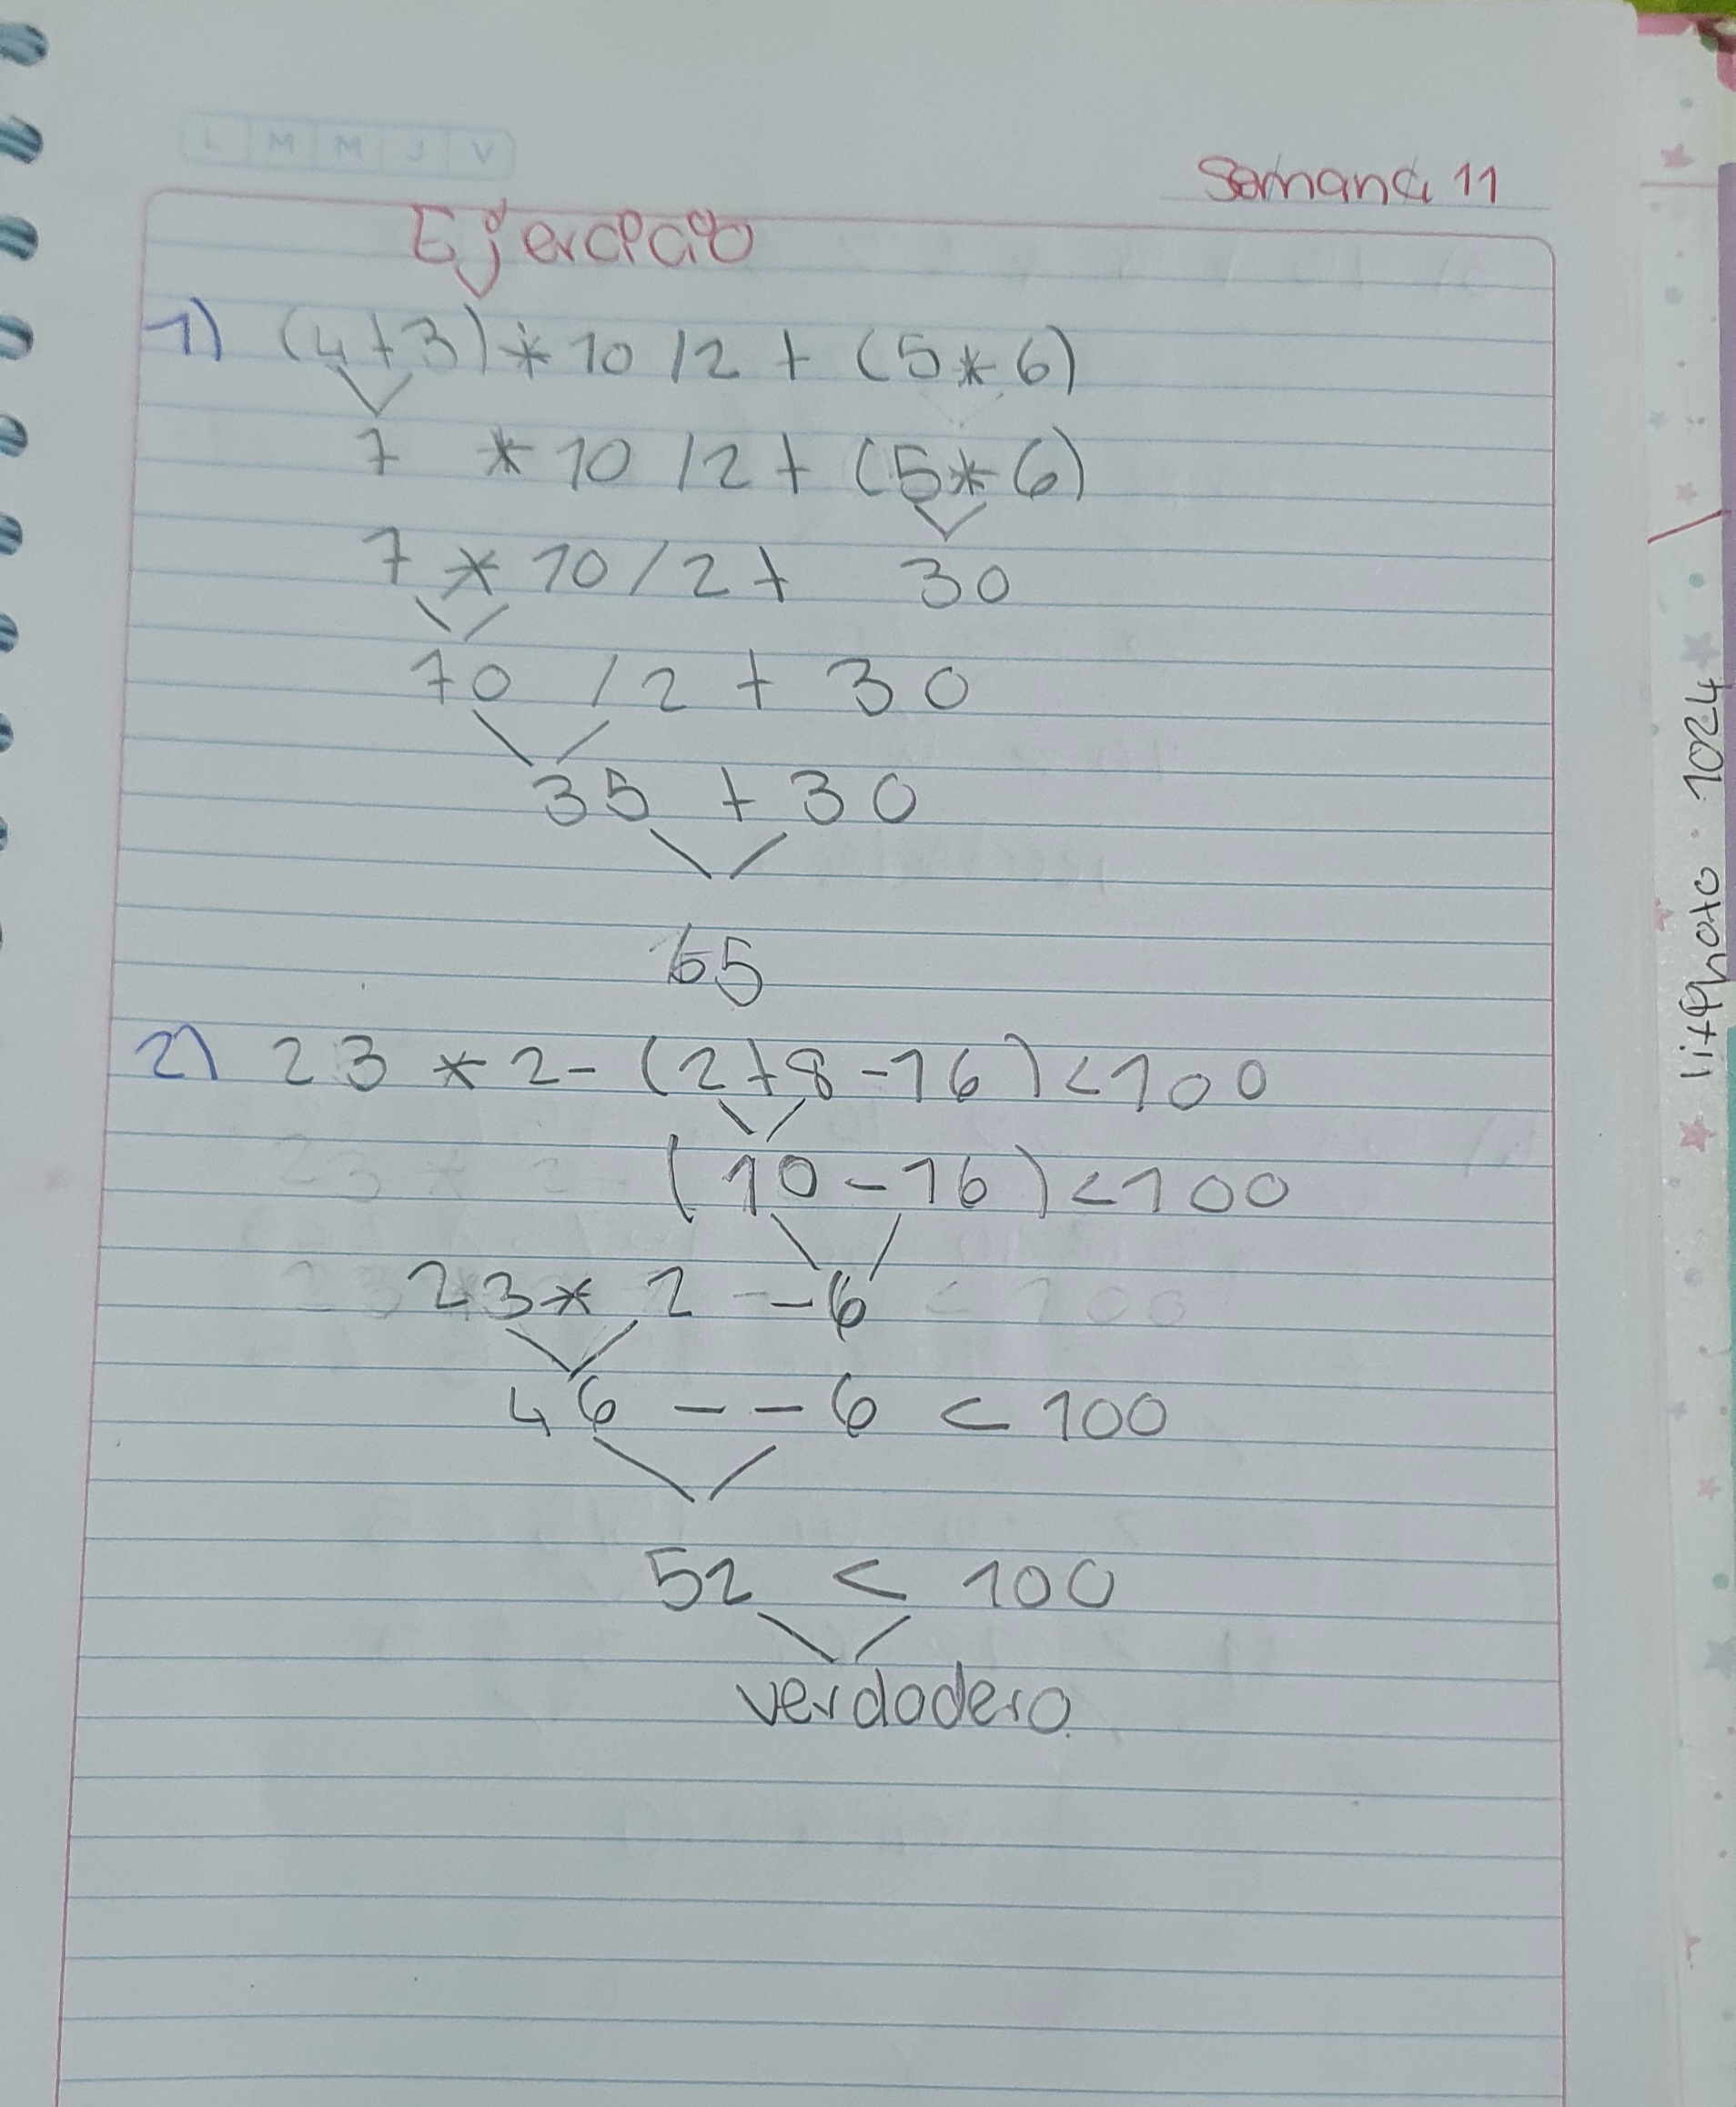 L M M J V
Semana 11
Ejercicio
1) (4+3) * 10 / 2 + (5 * 6)
7 * 10 / 2 + (5 * 6)
7 * 10 / 2 + 30
70 / 2 + 30
35 + 30
65
2) 23 * 2 - (2+8-16) < 100
(10-16) < 100
23 * 2 - -6 < 100
46 - - 6 < 100
52 < 100
verdadero.
litPhoto · 1024